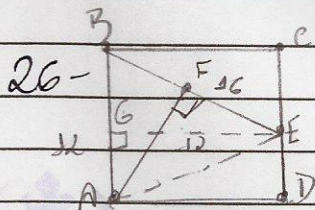 B C
26-
F 16
G
12 12 E
A D